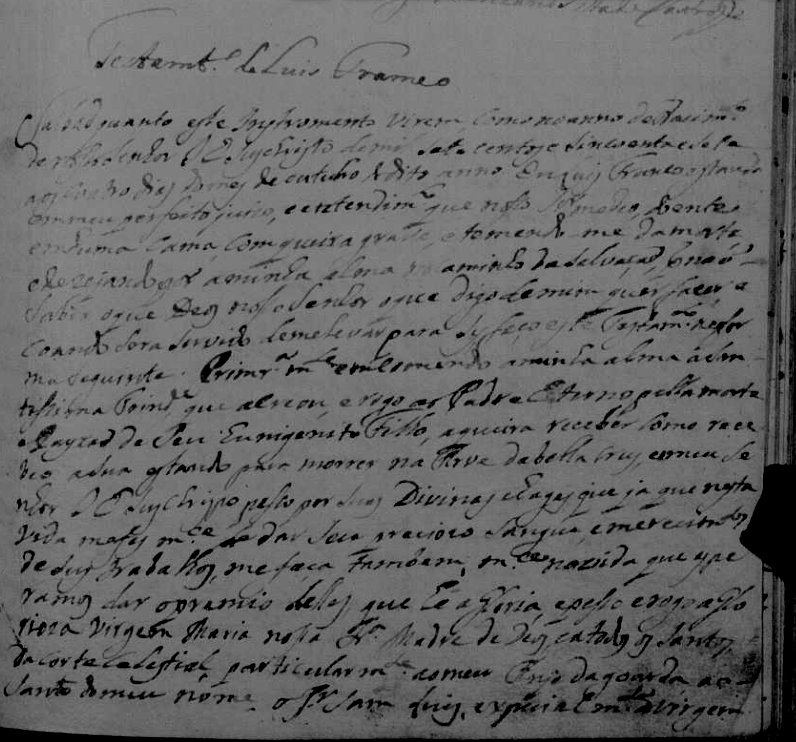 Testamt.º de Luis Franco
Saibão quanto este Instromento virem como no anno do Nascim.to
de nosso senhor JESus christo de mil sete centos e sincoenta e sete
aos coatro dias do mes de outubro do dito anno Eu Luis Franco estando
em meu perfeito juizo, e entendim.to que nosso Sr. me deo, doente
em huma cama, com queixa grave, e temendo me da morte
e dezejando por a minha alma no caminho da salvação, e não
saber o que Deos nosso senhor o que digo de mim quer fazer e
coando sera servido de me levar para si, faço este Testam.to na for
ma seguinte. Primr.a m.te emComendo a minha alma a San
tissima Trind.e que a creou, e rogo ao Padre Eterno pella morte
e Payxão de Seu Eunigenito Filho, a queira receber como rece
beo a sua estando para morrer na Arve da bella Crus, e o meu Se
nhor JESus christo pesso por suas Divinas chagas que ja que nesta
vida me fes m.ce de dar seu precioso sangue, e merecim.tos
de seus Trabalhos, me faça tambem m.ce na vida que espe
ramos dar o premio delles que he a Gloria, e pesso e rogo a Glo
rioza Virgem Maria nossa Sr.a Madre de Deos, e a todos os Santos
da corte celestial particularm.te ao meu Anjo da goarda ao
Santo do meu nome o Sr. Sam Luis, e expicialm.te a Virgem